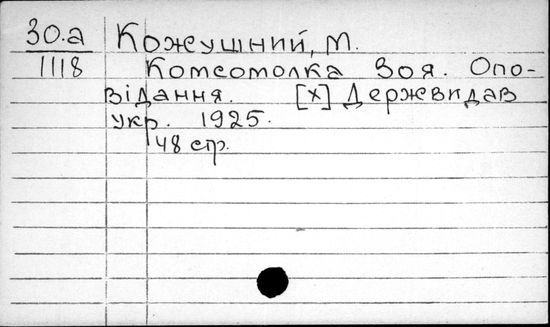 30.а Кожушний, М.
1118 Комсомолка Зоя. Опо-
відання. [х] Держвидав
укр. 1925.
48 стр.